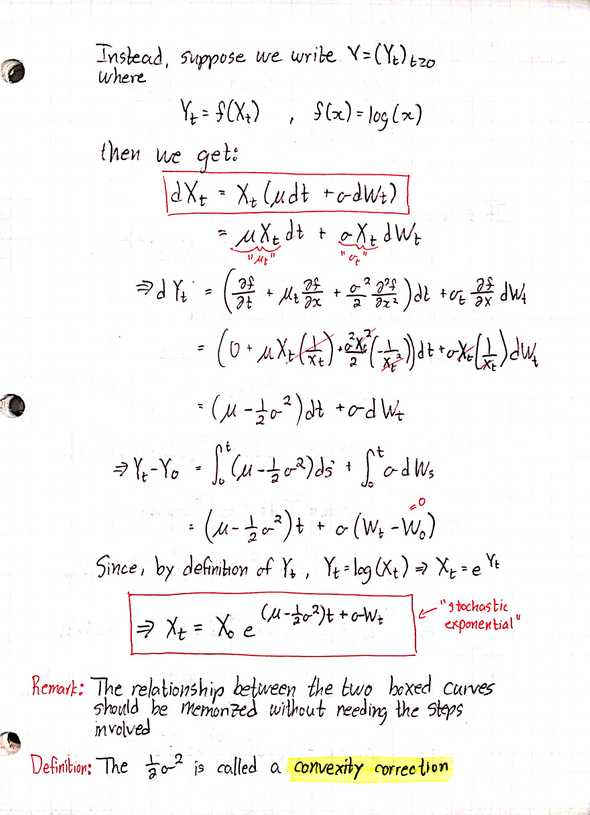 Instead, suppose we write Y=(Y_t)_{t≥0}
where
Y_t = f(X_t) , f(x) = log(x)
then we get:
dX_t = X_t (μdt + σdW_t)
= μX_t dt + σX_t dW_t
"μ_t" "σ_t"
⇒ dY_t = (∂f/∂t + μ_t ∂f/∂x + σ²/2 ∂²f/∂x²) dt + σ_t ∂f/∂x dW_t
= (0 + μX_t (1/X_t) + σ²X_t²/2 (-1/X_t²)) dt + σX_t (1/X_t) dW_t
= (μ - ½σ²) dt + σdW_t
⇒ Y_t - Y_0 = ∫_0^t (μ - ½σ²) ds + ∫_0^t σdW_s
= (μ - ½σ²)t + σ(W_t - W_0) =0
Since, by definition of Y_t, Y_t = log(X_t) ⇒ X_t = e^{Y_t}
⇒ X_t = X_0 e^{(μ-½σ²)t + σW_t} ← "stochastic
exponential"
Remark: The relationship between the two boxed curves
should be memorized without needing the steps
involved
Definition: The ½σ² is called a convexity correction